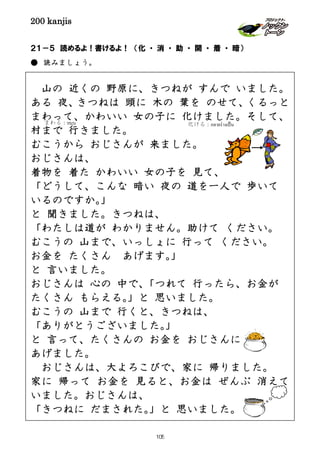 200 kanjis
プロジェクト
２１－５ 読めるよ！書けるよ！（化・消・助・開・着・暗）
● 読みましょう。
山の 近くの 野原に、きつねが すんで いました。
ある 夜、きつねは 頭に 木の 葉を のせて、くるっと
まわって、かわいい 女の子に 化けました。そして、
村まで 行きました。
むこうから おじさんが 来ました。
おじさんは、
着物を 着た かわいい 女の子を 見て、
「どうして、こんな 暗い 夜の 道を一人で 歩いて
いるのですか。」
と 聞きました。きつねは、
「わたしは道が わかりません。助けて ください。
むこうの 山まで、いっしょに 行って ください。
お金を たくさん あげます。」
と 言いました。
おじさんは 心の 中で、「つれて 行ったら、お金が
たくさん もらえる。」と 思いました。
むこうの 山まで 行くと、きつねは、
「ありがとうございました。」
と 言って、たくさんの お金を おじさんに
あげました。
おじさんは、大よろこびで、家に 帰りました。
家に 帰って お金を 見ると、お金は ぜんぶ 消えて
いました。おじさんは、
「きつねに だまされた。」と 思いました。